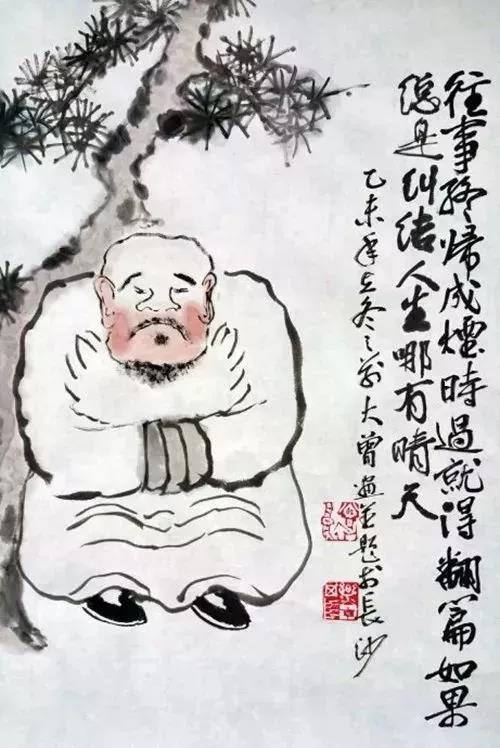 往事终归成烟时过就得翻篇如果
总是纠结人生哪有晴天
乙未年立冬之前大曾画并题于长沙